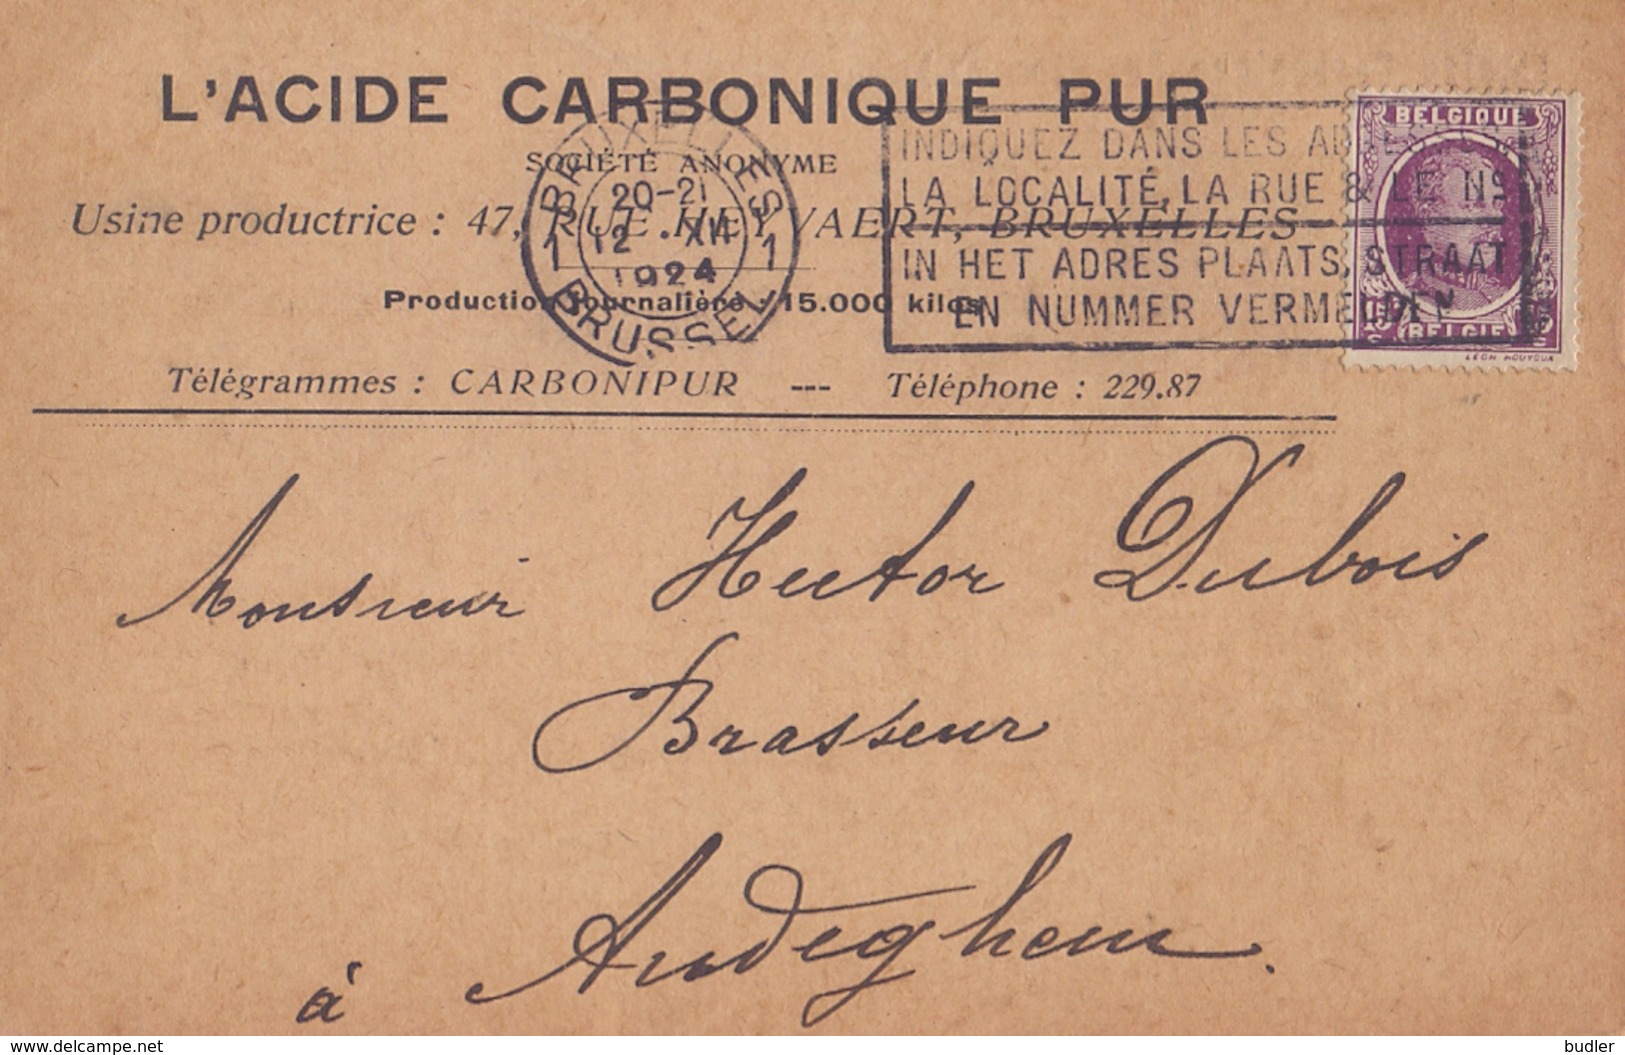 L'ACIDE CARBONIQUE PUR
SOCIÉTÉ ANONYME
Usine productrice : 47, RUE HEYVAERT, BRUXELLES
Production journalière : 15.000 kilos
Télégrammes : CARBONIPUR --- Téléphone : 229.87
BRUXELLES
20-21
1 12 XII 1
1924
BRUSSEL
INDIQUEZ DANS LES ADRESSES
LA LOCALITÉ, LA RUE & LE No
IN HET ADRES PLAATS, STRAAT
EN NUMMER VERMELDEN
BELGIQUE
15 c
BELGIE
LEON HOUYOUX
Monsieur Hector Dubois
Brasseur
à Audeghem.
www.delcampe.net
budler